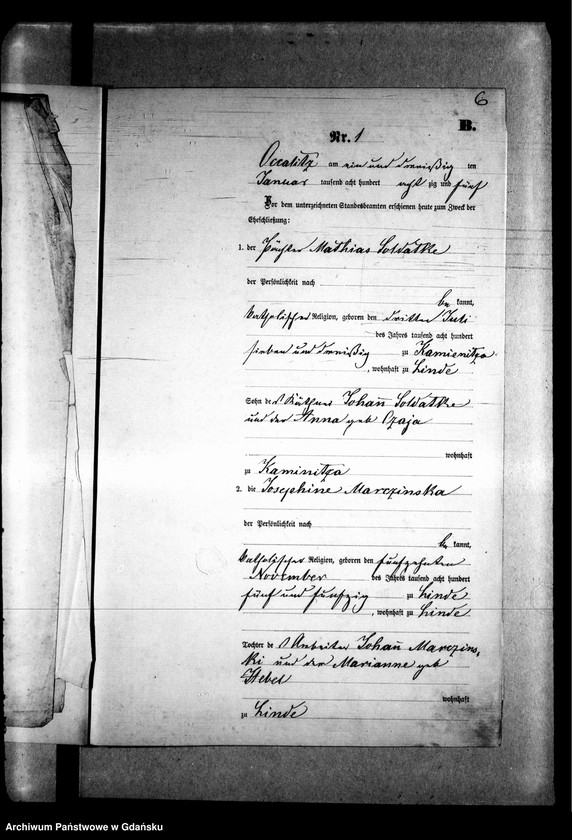 6
B.
Nr. 1
Occalitz am ein und dreißig ten
Januar tausend acht hundert acht zig und fünf
Vor dem unterzeichneten Standesbeamten erschienen heute zum Zweck der
Eheschließung:
1. der Pächter Mathias Soldatke
der Persönlichkeit nach
be kannt,
katholischer Religion, geboren den dritten Juli
des Jahres tausend acht hundert
sieben und dreißig zu Kamienitza
, wohnhaft zu Linde
Sohn des Käthner Johann Soldatke
und der Anna geb Czaja
wohnhaft
zu Kaminitza
2. die Josephine Marczinska
der Persönlichkeit nach
be kannt,
katholischer Religion, geboren den fünfzehnten
November des Jahres tausend acht hundert
fünf und funfzig zu Linde
, wohnhaft zu Linde
Tochter des Arbeiter Johann Marczins
ki und der Marianne geb
wohnhaft
zu Linde
Archiwum Państwowe w Gdańsku